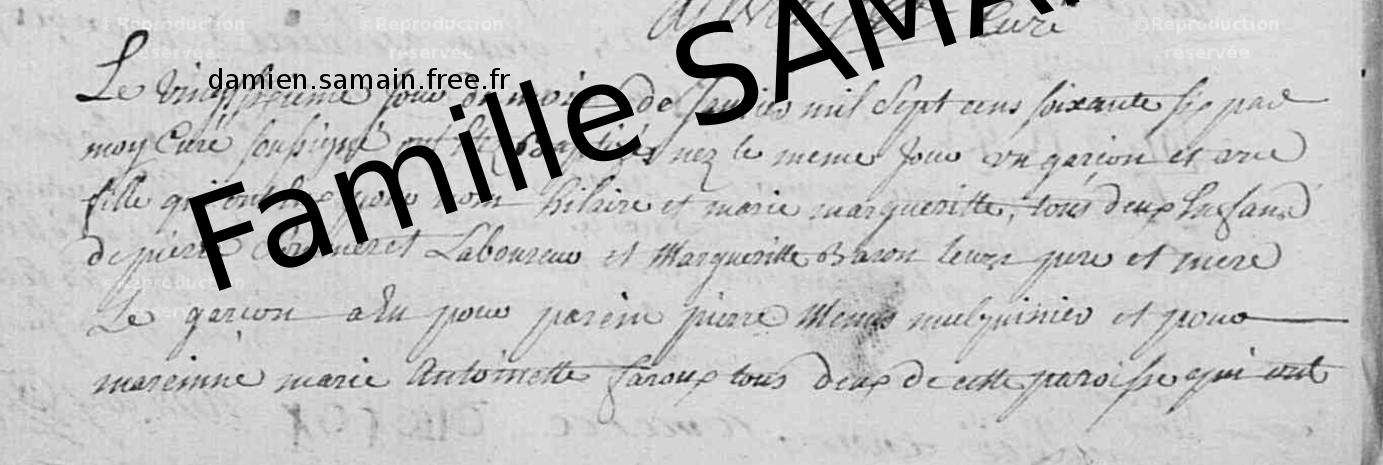 ©Reproduction ©Reproduction ©Reproduction
réservée réservée réservée
Curé
damien.samain.free.fr
Famille SAMA
Le jour du mois de Janvier mil Sept cens soixante six par
moy Curé soussigné ont été Baptisés nez le meme Jour un garcon et une
fille qui ont pour nom hilaire et marie margueritte, tous deux Enfans
de pierre Laboureur et Margueritte Baron leurs pere et mere
Le garcon a Eu pour parein pierre mulquinier et pour
mareinne marie Antoinette faroux tous deux de cette paroisse qui ont